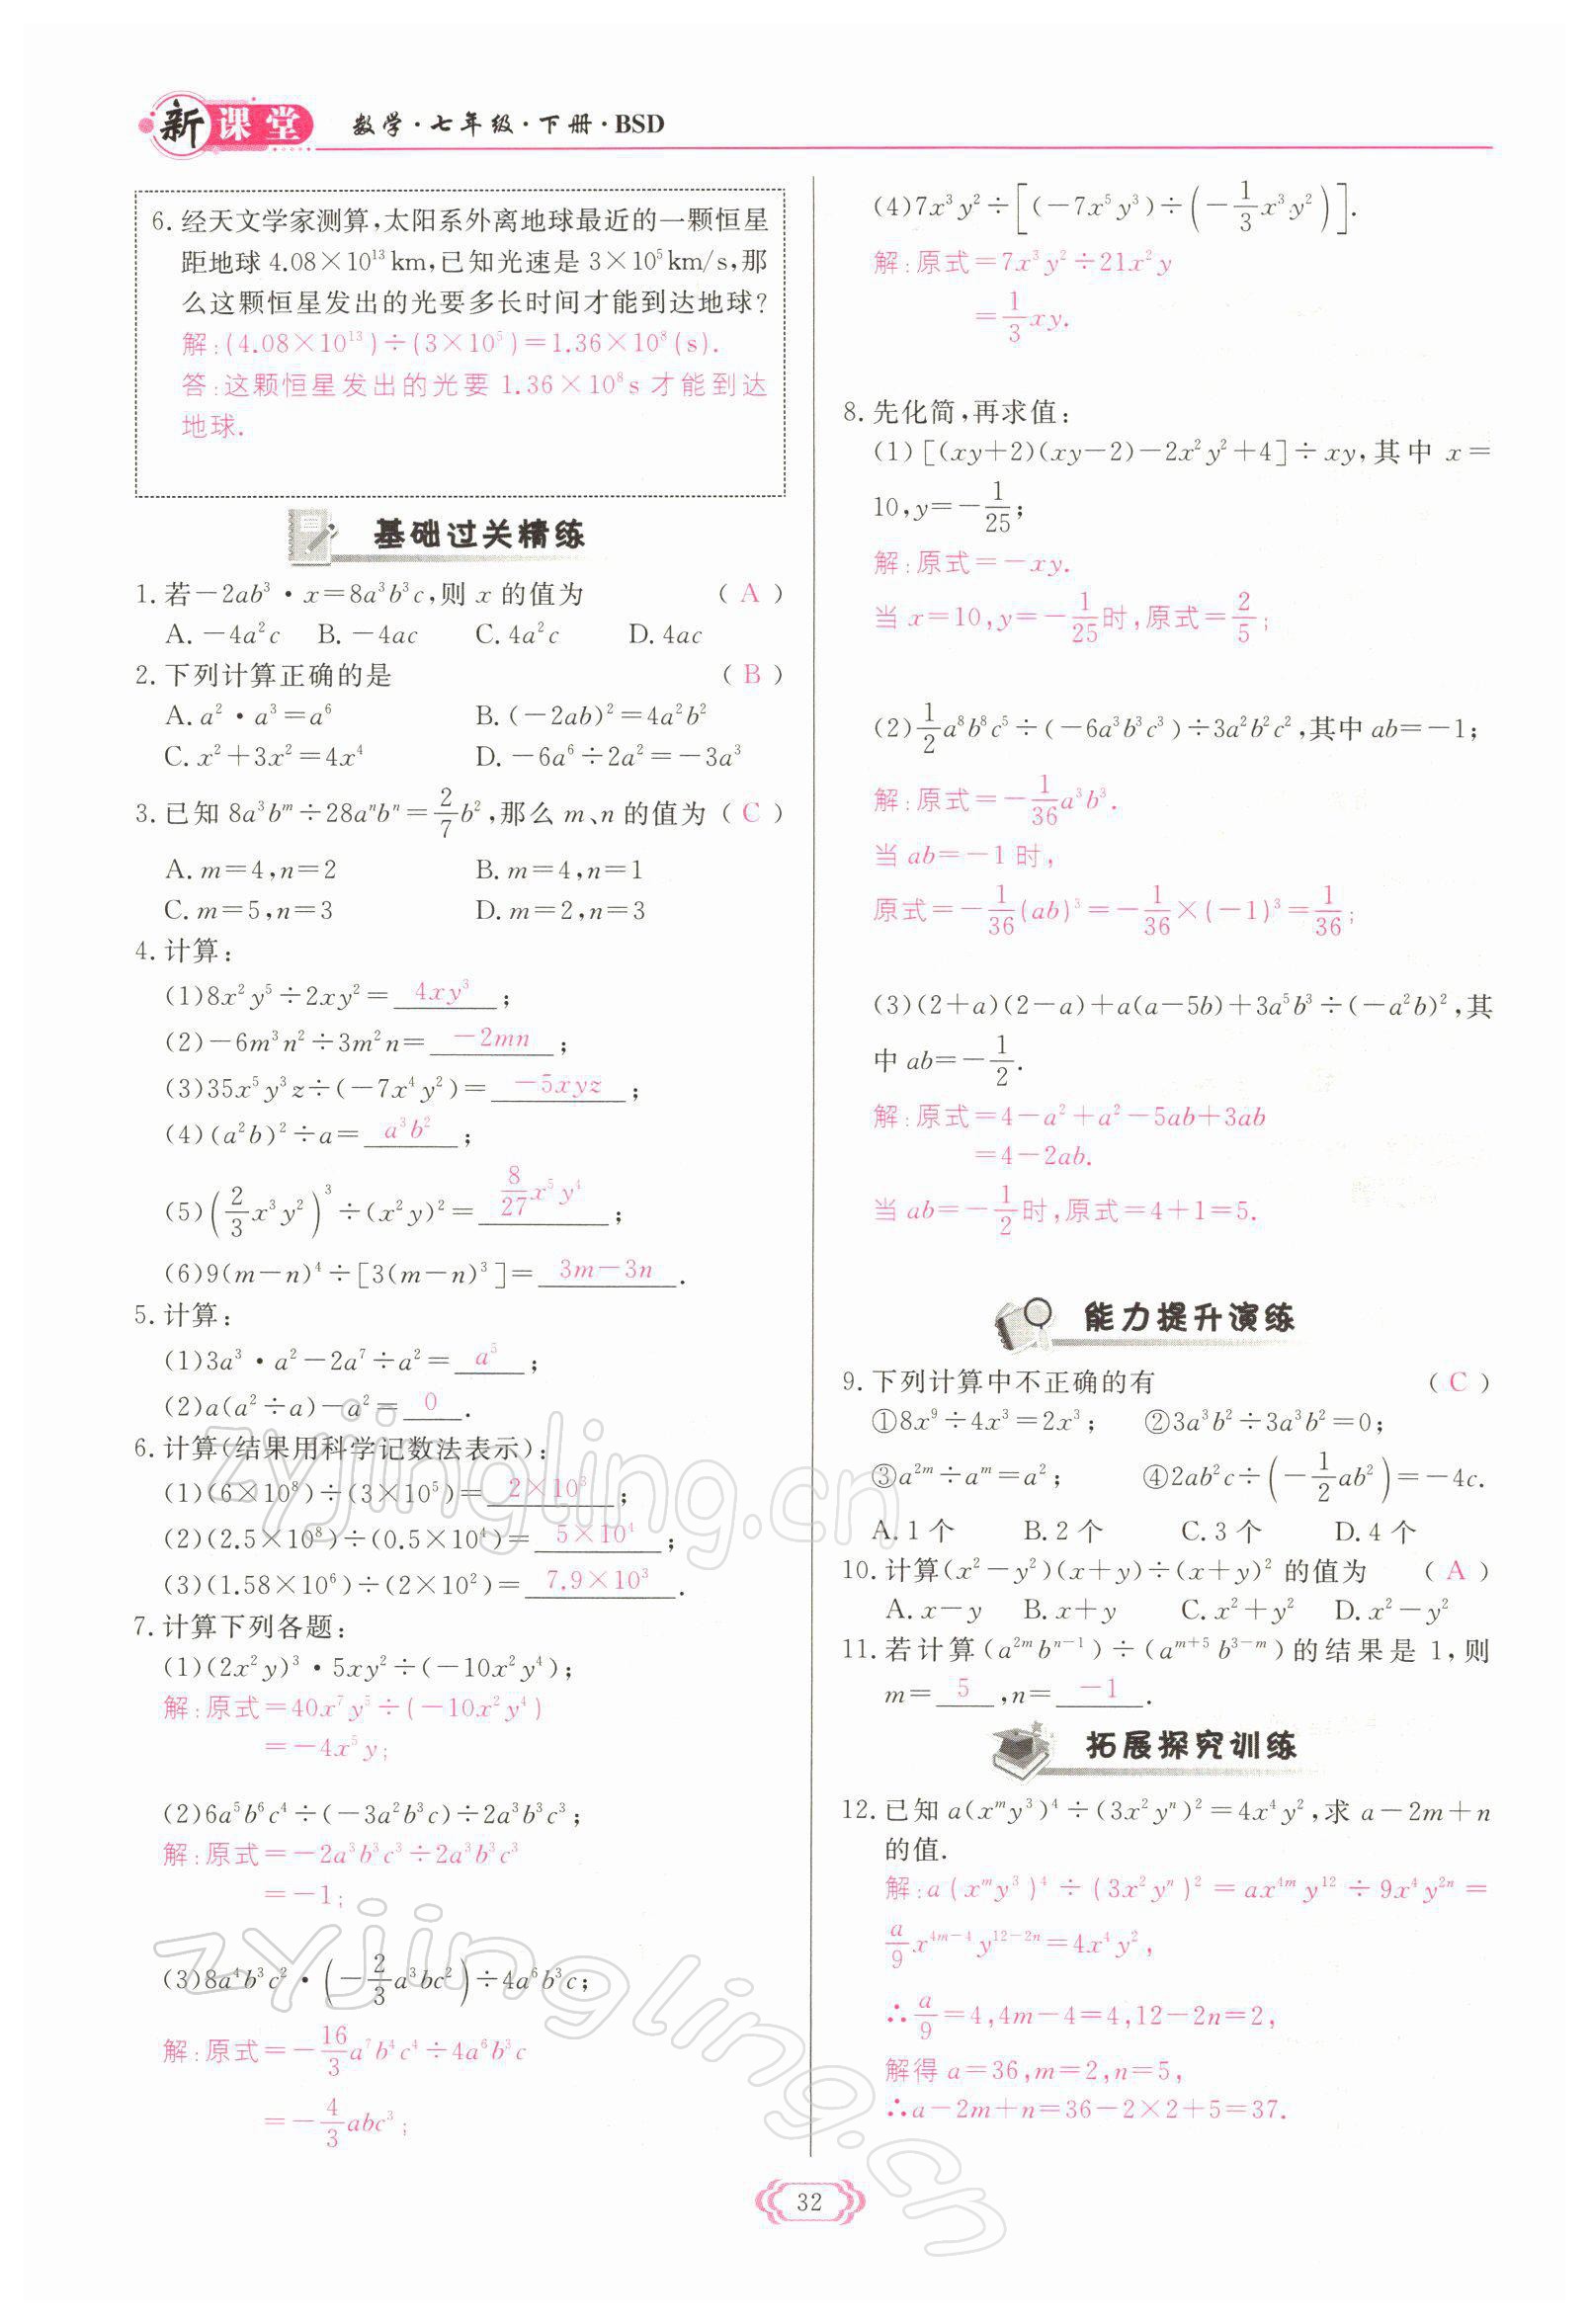 新课堂 数学·七年级·下册·BSD
6. 经天文学家测算,太阳系外离地球最近的一颗恒星
距地球 4.08×10¹³ km,已知光速是 3×10⁵ km/s,那
么这颗恒星发出的光要多长时间才能到达地球?
解:(4.08×10¹³)÷(3×10⁵)=1.36×10⁸(s).
答:这颗恒星发出的光要 1.36×10⁸ s 才能到达
地球.
基础过关精练
1. 若-2ab³·x=8a³b³c,则 x 的值为 ( A )
A. -4a²c B. -4ac C. 4a²c D. 4ac
2. 下列计算正确的是 ( B )
A. a²·a³=a⁶ B. (-2ab)²=4a²b²
C. x²+3x²=4x⁴ D. -6a⁶÷2a²=-3a³
3. 已知 8a³bᵐ÷28aⁿbⁿ=2/7 b²,那么 m、n 的值为 ( C )
A. m=4,n=2 B. m=4,n=1
C. m=5,n=3 D. m=2,n=3
4. 计算:
(1)8x²y⁵÷2xy²=4xy³;
(2)-6m³n²÷3m²n=-2mn;
(3)35x⁵y³z÷(-7x⁴y²)=-5xyz;
(4)(a²b)²÷a=a³b²;
(5)(2/3 x³y²)³÷(x²y)²=8/27 x⁵y⁴;
(6)9(m-n)⁴÷[3(m-n)³]=3m-3n.
5. 计算:
(1)3a³·a²-2a⁷÷a²=a⁵;
(2)a(a²÷a)-a²=0.
6. 计算(结果用科学记数法表示):
(1)(6×10⁸)÷(3×10⁵)=2×10³;
(2)(2.5×10⁸)÷(0.5×10⁴)=5×10⁴;
(3)(1.58×10⁶)÷(2×10²)=7.9×10³.
7. 计算下列各题:
(1)(2x²y)³·5xy²÷(-10x²y⁴);
解:原式=40x⁷y⁵÷(-10x²y⁴)
=-4x⁵y;
(2)6a⁵b⁶c⁴÷(-3a²b³c)÷2a³b³c³;
解:原式=-2a³b³c³÷2a³b³c³
=-1;
(3)8a⁴b³c²·(-2/3 a³bc²)÷4a⁶b³c;
解:原式=-16/3 a⁷b⁴c⁴÷4a⁶b³c
=-4/3 abc³;
(4)7x³y²÷[(-7x⁵y³)÷(-1/3 x³y²)].
解:原式=7x³y²÷21x²y
=1/3 xy.
8. 先化简,再求值:
(1)[(xy+2)(xy-2)-2x²y²+4]÷xy,其中 x=
10,y=-1/25;
解:原式=-xy.
当 x=10,y=-1/25时,原式=2/5;
(2)1/2 a⁸b⁸c⁵÷(-6a³b³c³)÷3a²b²c²,其中 ab=-1;
解:原式=-1/36 a³b³.
当 ab=-1 时,
原式=-1/36(ab)³=-1/36×(-1)³=1/36;
(3)(2+a)(2-a)+a(a-5b)+3a⁵b³÷(-a²b)²,其
中 ab=-1/2.
解:原式=4-a²+a²-5ab+3ab
=4-2ab.
当 ab=-1/2时,原式=4+1=5.
能力提升演练
9. 下列计算中不正确的有 ( C )
①8x⁹÷4x³=2x³; ②3a³b²÷3a³b²=0;
③a²ᵐ÷aᵐ=a²; ④2ab²c÷(-1/2 ab²)=-4c.
A. 1 个 B. 2 个 C. 3 个 D. 4 个
10. 计算(x²-y²)(x+y)÷(x+y)² 的值为 ( A )
A. x-y B. x+y C. x²+y² D. x²-y²
11. 若计算(a²ᵐbⁿ⁻¹)÷(aᵐ⁺⁵b³⁻ᵐ)的结果是 1,则
m=5,n=-1.
拓展探究训练
12. 已知 a(xᵐy³)⁴÷(3x²yⁿ)²=4x⁴y²,求 a-2m+n
的值.
解:a(xᵐy³)⁴÷(3x²yⁿ)²=ax⁴ᵐy¹²÷9x⁴y²ⁿ=
a/9 x⁴ᵐ⁻⁴y¹²⁻²ⁿ=4x⁴y²,
∴a/9=4,4m-4=4,12-2n=2,
解得 a=36,m=2,n=5,
∴a-2m+n=36-2×2+5=37.
32
zyjingling.cn
zyjingling.cn